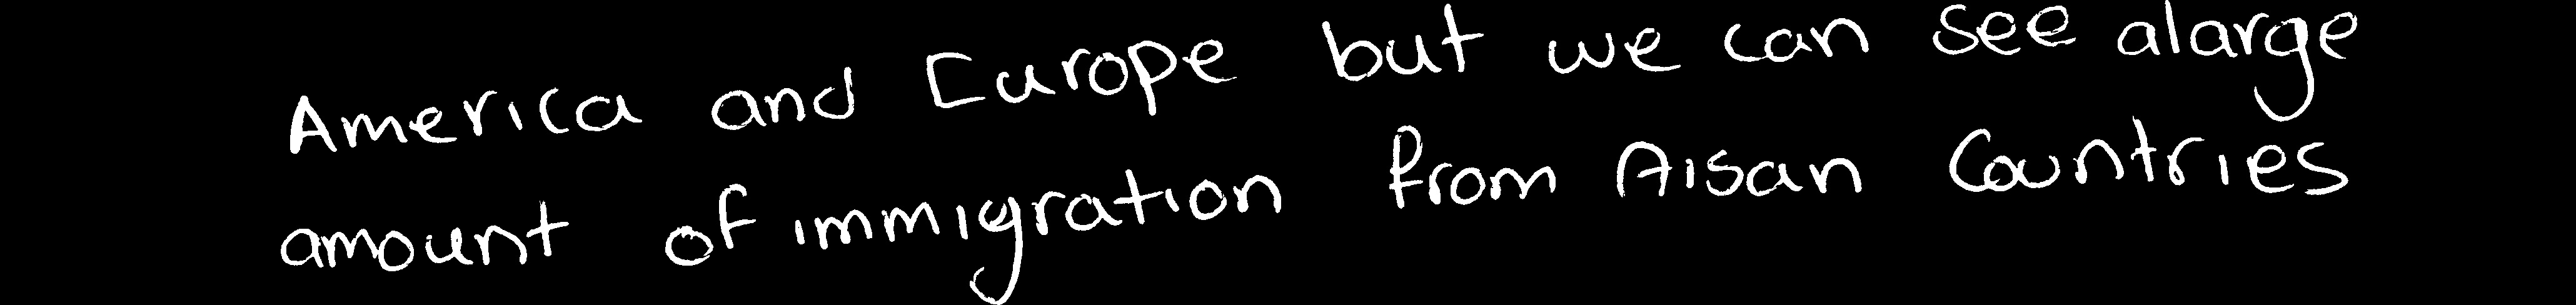 America and Europe but we can see alarge
amount of immigration from Aisan Countries